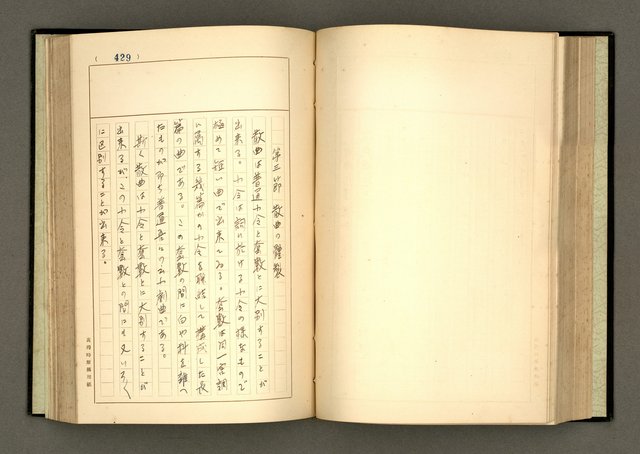 (429)
第三節 散曲の種類
散曲は普通小令と套数とに大別することが
出来る。小令は詞に於ける小令の様なもので
極めて短い曲で出来てゐる。套数は同一宮調
に属する幾篇かの小令を聯結して構成した長
篇の曲である。この套数の間に白や科を雑へ
たものが即ち普通吾々の云ふ劇曲である。
斯く散曲は小令と套数とに大別することが
出来るがこの小令と套数との間にも又いろ〱
に区別することが出来る。